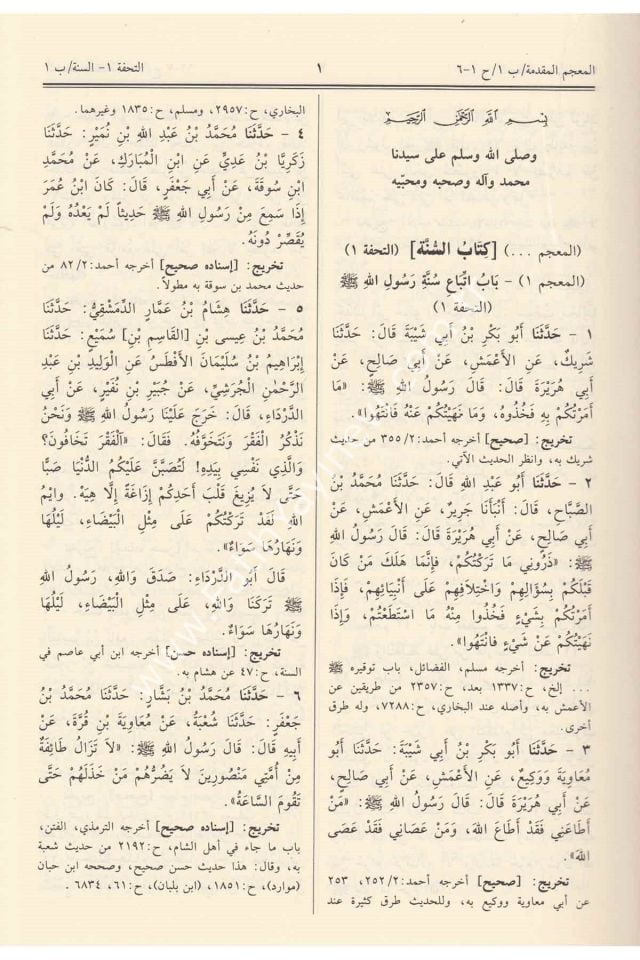 المعجم المقدمة/ ب ١/ ح ١-٦
١
التحفة ١- السنة/ ب ١
بِسْمِ اللهِ الرَّحْمٰنِ الرَّحِيْمِ
وصلى الله وسلم على سيدنا
محمد وآله وصحبه ومحبّيه
(المعجم ...) [كِتَابُ السُّنَّة] (التحفة ١)
(المعجم ١) - بَابُ اتِّبَاعِ سُنَّةِ رَسُولِ اللهِ ﷺ
(التحفة ١)
١ - حَدَّثَنَا أَبُو بَكْرِ بْنُ أَبِي شَيْبَةَ قَالَ: حَدَّثَنَا
شَرِيكٌ، عَنِ الأَعْمَشِ، عَنْ أَبِي صَالِحٍ، عَنْ
أَبِي هُرَيْرَةَ قَالَ: قَالَ رَسُولُ اللهِ ﷺ: «مَا
أَمَرْتُكُمْ بِهِ فَخُذُوهُ، وَمَا نَهَيْتُكُمْ عَنْهُ فَانْتَهُوا».
تخريج: [صحيح] أخرجه أحمد: ٢/ ٣٥٥ من حديث
شريك به، وانظر الحديث الآتي.
٢ - حَدَّثَنَا أَبُو عَبْدِ اللهِ قَالَ: حَدَّثَنَا مُحَمَّدُ بْنُ
الصَّبَّاحِ، قَالَ: أَنْبَأَنَا جَرِيرٌ، عَنِ الأَعْمَشِ، عَنْ
أَبِي صَالِحٍ، عَنْ أَبِي هُرَيْرَةَ قَالَ: قَالَ رَسُولُ اللهِ
ﷺ: «ذَرُونِي مَا تَرَكْتُكُمْ، فَإِنَّمَا هَلَكَ مَنْ كَانَ
قَبْلَكُمْ بِسُؤَالِهِمْ وَاخْتِلَافِهِمْ عَلَى أَنْبِيَائِهِمْ، فَإِذَا
أَمَرْتُكُمْ بِشَيْءٍ فَخُذُوا مِنْهُ مَا اسْتَطَعْتُمْ، وَإِذَا
نَهَيْتُكُمْ عَنْ شَيْءٍ فَانْتَهُوا».
تخريج: أخرجه مسلم، الفضائل، باب توقيره ﷺ
... إلخ، ح: ١٣٣٧ بعد، ح: ٢٣٥٧ من طريقين عن
الأعمش به، وأصله عند البخاري، ح: ٧٢٨٨، وله طرق
أخرى.
٣ - حَدَّثَنَا أَبُو بَكْرِ بْنُ أَبِي شَيْبَةَ: حَدَّثَنَا أَبُو
مُعَاوِيَةَ وَوَكِيعٌ، عَنِ الأَعْمَشِ، عَنْ أَبِي صَالِحٍ،
عَنْ أَبِي هُرَيْرَةَ قَالَ: قَالَ رَسُولُ اللهِ ﷺ: «مَنْ
أَطَاعَنِي فَقَدْ أَطَاعَ اللهَ، وَمَنْ عَصَانِي فَقَدْ عَصَى
اللهَ».
تخريج: [صحيح] أخرجه أحمد: ٢/ ٢٥٢، ٢٥٣
عن أبي معاوية ووكيع به، وللحديث طرق كثيرة عند
البخاري، ح: ٢٩٥٧، ومسلم، ح: ١٨٣٥ وغيرهما.
٤ - حَدَّثَنَا مُحَمَّدُ بْنُ عَبْدِ اللهِ بْنِ نُمَيْرٍ: حَدَّثَنَا
زَكَرِيَّا بْنُ عَدِيٍّ عَنِ ابْنِ الْمُبَارَكِ، عَنْ مُحَمَّدِ
ابْنِ سُوقَةَ، عَنْ أَبِي جَعْفَرٍ، قَالَ: كَانَ ابْنُ عُمَرَ
إِذَا سَمِعَ مِنْ رَسُولِ اللهِ ﷺ حَدِيثاً لَمْ يَعْدُهُ وَلَمْ
يُقَصِّرْ دُونَهُ.
تخريج: [إسناده صحيح] أخرجه أحمد: ٢/ ٨٢ من
حديث محمد بن سوقة به مطولاً.
٥ - حَدَّثَنَا هِشَامُ بْنُ عَمَّارٍ الدِّمَشْقِيُّ: حَدَّثَنَا
مُحَمَّدُ بْنُ عِيسى بْنِ [القَاسِمِ بْنِ] سُمَيْعٍ: حَدَّثَنَا
إِبْرَاهِيمُ بْنُ سُلَيْمَانَ الأَفْطَسُ عَنِ الْوَلِيدِ بْنِ عَبْدِ
الرَّحْمٰنِ الْجُرَشِيِّ، عَنْ جُبَيْرِ بْنِ نُفَيْرٍ، عَنْ أَبِي
الدَّرْدَاءِ، قَالَ: خَرَجَ عَلَيْنَا رَسُولُ اللهِ ﷺ وَنَحْنُ
نَذْكُرُ الْفَقْرَ وَنَتَخَوَّفُهُ. فَقَالَ: «آلْفَقْرَ تَخَافُونَ؟
وَالَّذِي نَفْسِي بِيَدِهِ! لَتُصَبَّنَّ عَلَيْكُمُ الدُّنْيَا صَبًّا
حَتَّى لَا يُزِيغَ قَلْبَ أَحَدِكُمْ إِزَاغَةً إِلَّا هِيَهْ. وايْمُ
اللهِ لَقَدْ تَرَكْتُكُمْ عَلَى مِثْلِ الْبَيْضَاءِ، لَيْلُهَا
وَنَهَارُهَا سَوَاءٌ».
قَالَ أَبُو الدَّرْدَاءِ: صَدَقَ وَاللهِ، رَسُولُ اللهِ
ﷺ تَرَكَنَا وَاللهِ، عَلَى مِثْلِ الْبَيْضَاءِ، لَيْلُهَا
وَنَهَارُهَا سَوَاءٌ.
تخريج: [إسناده حسن] أخرجه ابن أبي عاصم في
السنة، ح: ٤٧ عن هشام به.
٦ - حَدَّثَنَا مُحَمَّدُ بْنُ بَشَّارٍ: حَدَّثَنَا مُحَمَّدُ بْنُ
جَعْفَرٍ: حَدَّثَنَا شُعْبَةُ، عَنْ مُعَاوِيَةَ بْنِ قُرَّةَ، عَنْ
أَبِيهِ قَالَ: قَالَ رَسُولُ اللهِ ﷺ: «لَا تَزَالُ طَائِفَةٌ
مِنْ أُمَّتِي مَنْصُورِينَ لَا يَضُرُّهُمْ مَنْ خَذَلَهُمْ حَتَّى
تَقُومَ السَّاعَةُ».
تخريج: [إسناده صحيح] أخرجه الترمذي، الفتن،
باب ما جاء في أهل الشام، ح: ٢١٩٢ من حديث شعبة
به، وقال: هذا حديث حسن صحيح، وصححه ابن حبان
(موارد)، ح: ١٨٥١، (ابن بلبان)، ح: ٦١، ٦٨٣٤.